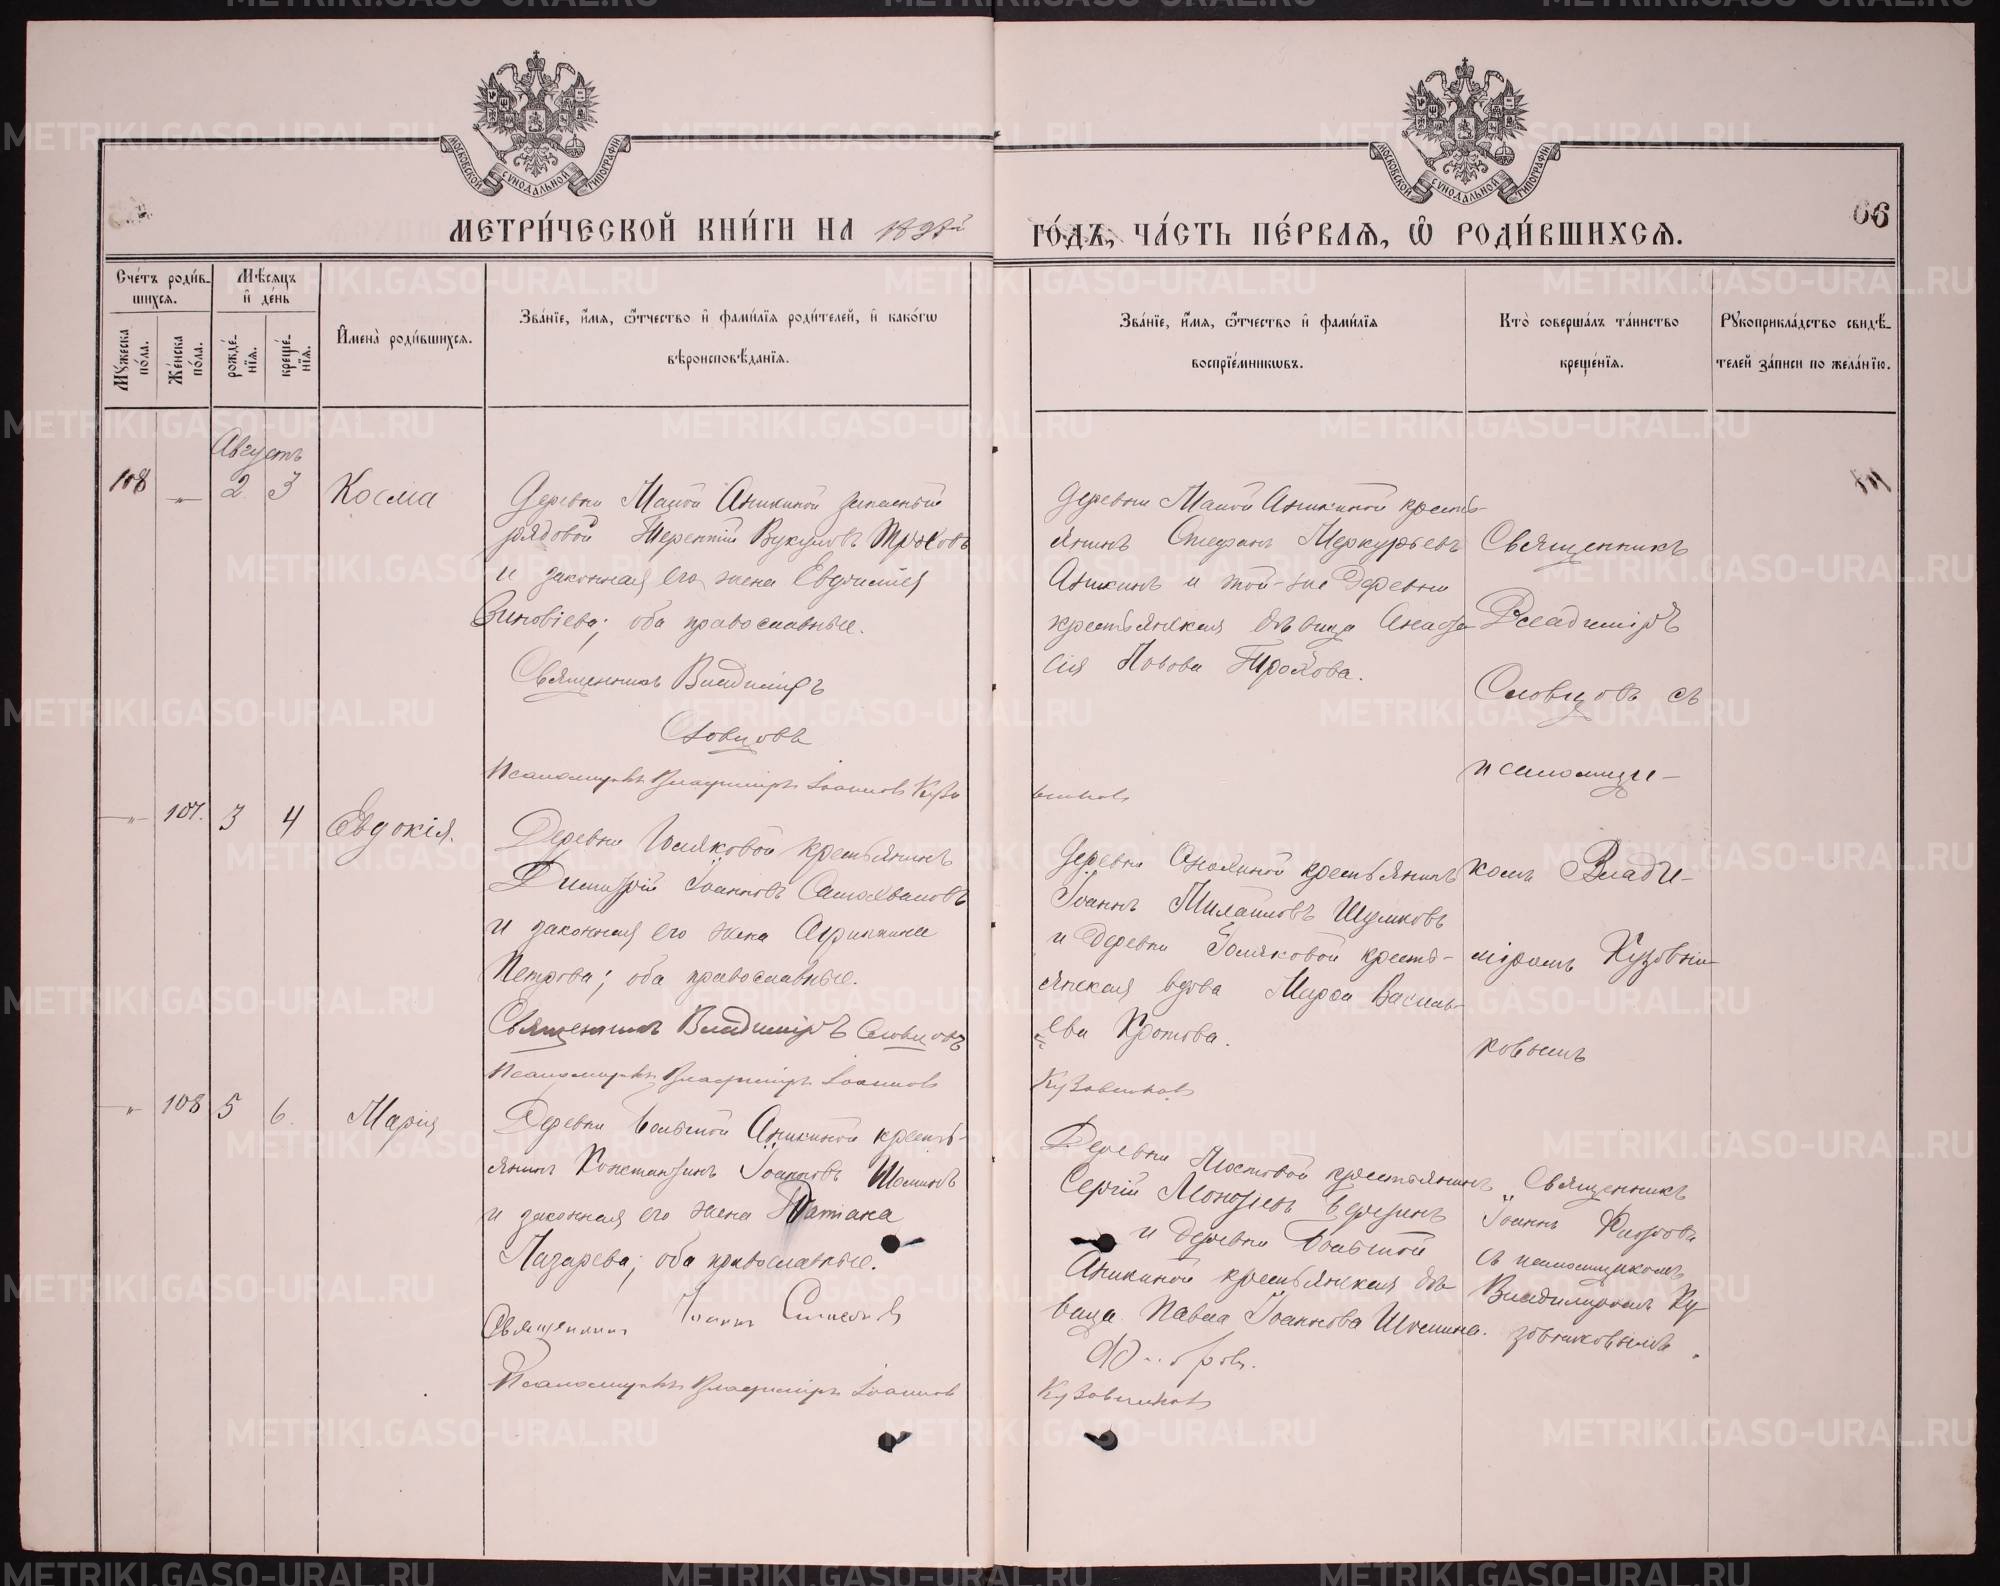 МОСКОВСКОЙ СУНОДАЛЬНОЙ ТИПОГРАФІИ
МОСКОВСКОЙ СУНОДАЛЬНОЙ ТИПОГРАФІИ
МЕТРИ́ЧЕСКОЙ КНИ́ГИ НА
ГО́ДЪ, ЧА́СТЬ ПЕ́РВАѦ, Ѡ҆ РОДИ́ВШИХСѦ.
66
Сче́тъ роди́в-
шихсѧ.
Мꙋ́жеска по́ла.
Же́нска по́ла.
Мѣ́сѧцъ
и҆ де́нь
рожде́-нїѧ.
креще́-нїѧ.
И҆мена̀ роди́вшихсѧ.
Зва́нїе, и҆́мѧ, ѻ҆́тчество и҆ фами́лїѧ роди́телей, и҆ како́гѡ
вѣроисповѣ́данїѧ.
Зва́нїе, и҆́мѧ, ѻ҆́тчество и҆ фами́лїѧ
воспрїе́мникѡвъ.
Кто̀ соверша́лъ та́инство
креще́нїѧ.
Рꙋкоприкла́дство свидѣ́-
телей за́писи по жела́нїю.
Августъ
108 „ 2 3 Косма
Деревни Малой Аникиной запасный
рядовой Терентій Вукуловъ
и законная его жена Евфимія
Зиновіева; оба православные.
Священникъ Владиміръ
Словцовъ
Псаломщикъ Владиміръ Іоанновъ Кузо
деревни Малой Аникиной кресть-
янинъ Стефанъ Меркурьевъ
Аникинъ и той-же деревни
крестьянская дѣвица Анаста
сія
вниковъ
Священникъ
Владиміръ
Словцовъ съ
псаломщи-
комъ Влади-
міромъ Кузовни-
ковымъ
„ 107. 3 4 Евдокія.
Деревни Голяковой крестьянинъ
Димитрій Іоанновъ Самохваловъ
и законная его жена Агрипина
Петрова; оба православные.
Священникъ Владиміръ Словцовъ
Псаломщикъ Владиміръ Іоанновъ
крестьянинъ
Іоаннъ Михаиловъ Шумковъ
и деревни Голяковой кресть-
янская вдова Марфа Василь-
ева Кротова.
Кузовниковъ
„ 108 5 6. Марія
Деревни Большой Аникиной кресть-
янинъ Константинъ Іоанновъ Шоминъ
и законная его жена Татіана
Лазарева; оба православные.
Священникъ Іоаннъ
Псаломщикъ Владиміръ Іоанновъ
Деревни Мостовой крестьянинъ
Сергій
и деревни Большой
Аникиной крестьянская дѣ
вица Павла Іоаннова Шомина.
Кузовниковъ
Священникъ
Іоаннъ
съ псаломщикомъ
Владиміромъ Ку
зовниковымъ.
METRIKI.GASO-URAL.RU